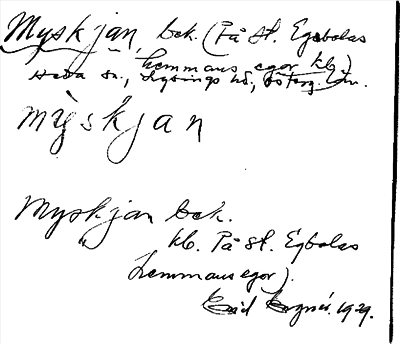 Myskjan, bek. (På St. Egebolas
hemmans egor kb.)
Heda sn., Lysings hd, Österg. län.
myskjan
Myskjan bek.
kb. På St. Egbolas
hemmans egor).
1929.